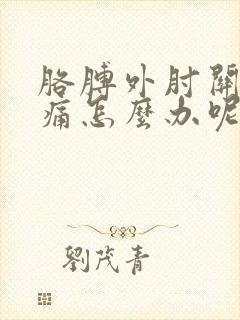 胳膊外肘關
痛怎麼办呢
劉茂青